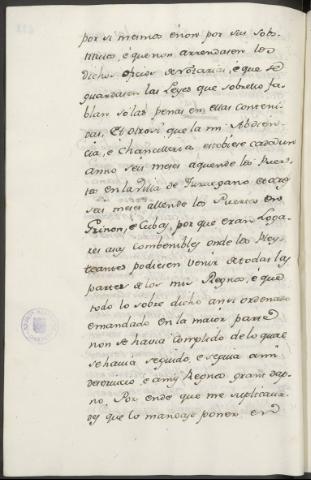 por si mesmos é non por sus sobs-
titutos, é que non arrendasen los
dichos oficios de Notarias, é que se
guardasen las Leyes que sobrello fa-
blan só las penas en ellas conteni-
das. Et otrosi que la mi Abdien-
cia, e Chancelleria estobiese cada un
anno seis meses aquende los Puer-
tos en la Villa de Turuegano et otros
seis meses allende los Puertos en
Grinon, e Cubas, por que eran Loga-
res muy combenibles onde los Pley-
teantes podiesen venir de todas las
partes de los mis Regnos, é que
todo lo sobre dicho ansi ordenado
e mandado en la maior parte
non se havia complido de lo qual
se havia seguido, e seguia a mi
deservicio, e a mis Regnos grant dap-
no. Por ende que me suplicava-
des que lo mandase poner en